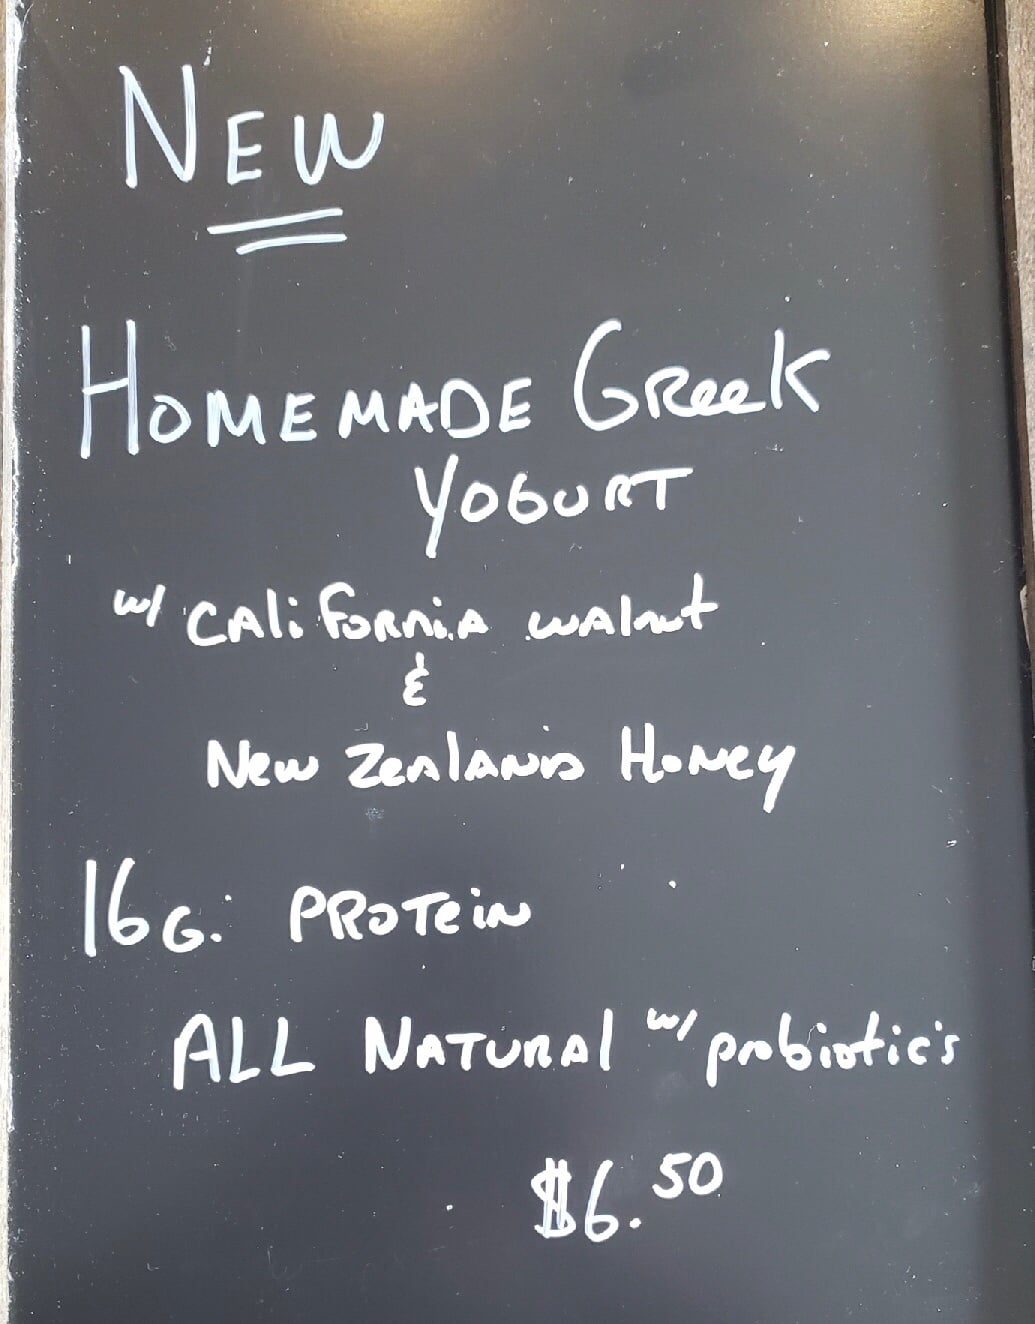 NEW
HOMEMADE GReek
YOGURT
w/ CAliFORNiA WAlnut
&
New ZeAlAND HoNey
16G. PROTeiN
ALL NATURAl w/ probiotic's
$6.50